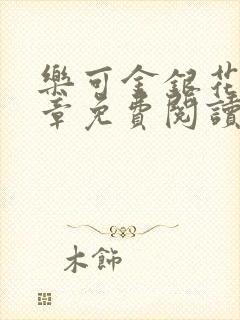 樂可金銀花
章免費閱讀
木飾